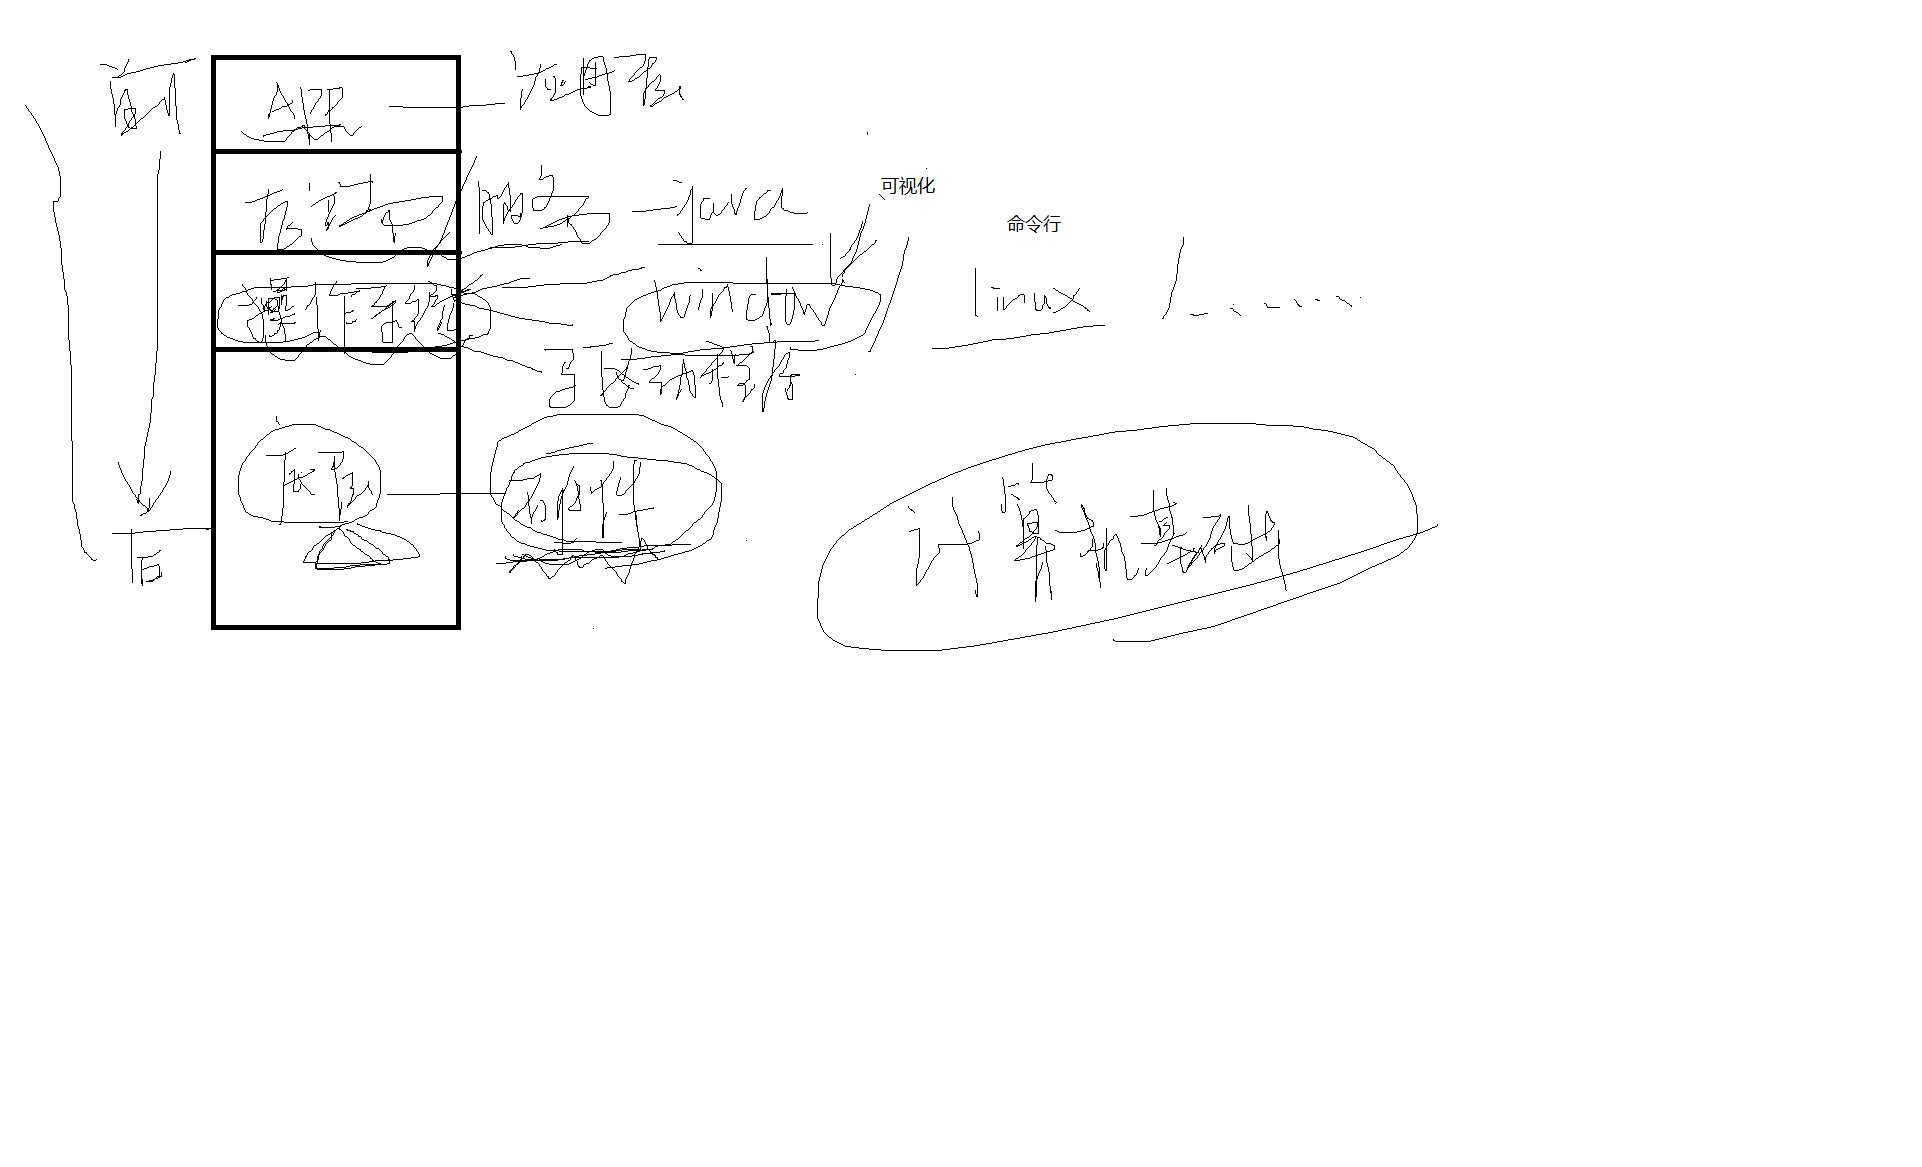 前
APP
应用层
服务
java
可视化
命令行
操作系统
window
linux
驱动程序
底层
硬件
后
计算机基础